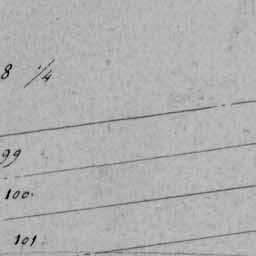 8 1/4
99
100.
101.